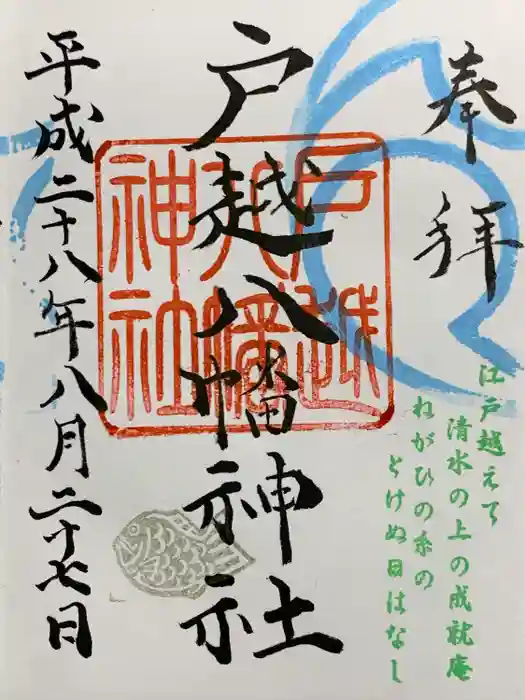 奉拝
戸越八幡神社
戸越
八幡
神社
平成二十八年八月二十七日
江戸越えて
清水の上の成就庵
ねがひの糸の
とけぬ日はなし